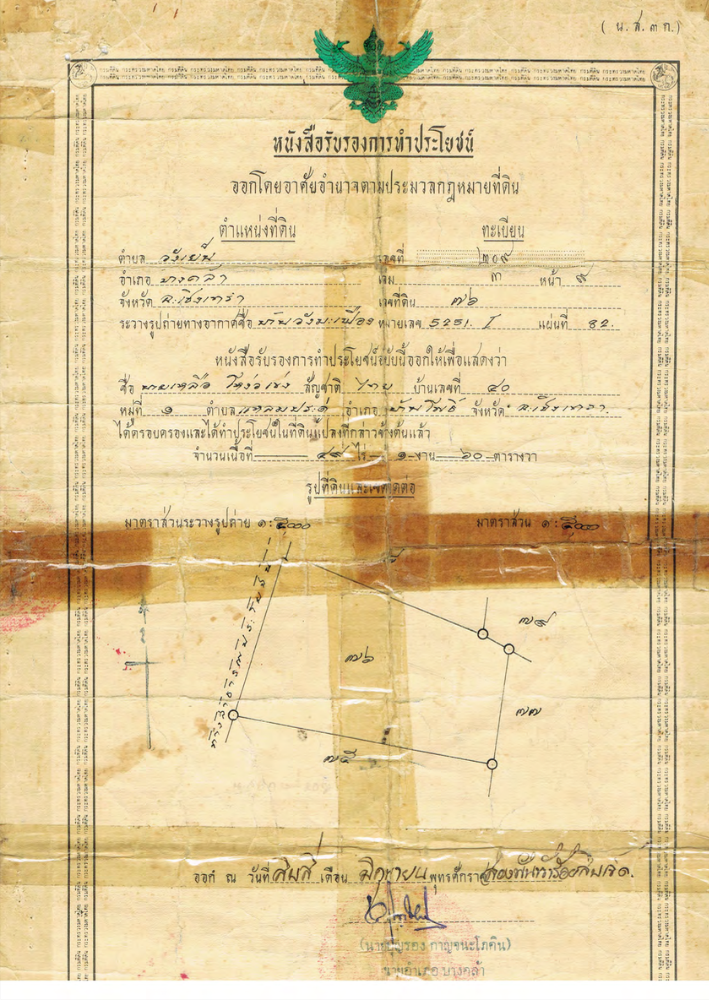 ( น.ส. ๓ ก.)
หนังสือรับรองการทำประโยชน์
ออกโดยอาศัยอำนาจตามประมวลกฎหมายที่ดิน
ตำแหน่งที่ดิน ทะเบียน
ตำบล วังเย็น เลขที่ ๒๐๙
อำเภอ บางคล้า เล่ม ๓ หน้า ๙
จังหวัด ฉะเชิงเทรา เลขที่ดิน ๗๖
ระวางรูปถ่ายทางอากาศชื่อ บ้านวังมะเฟือง หมายเลข 5251. I แผ่นที่ 82.
หนังสือรับรองการทำประโยชน์ฉบับนี้ออกให้เพื่อแสดงว่า
ชื่อ นายเหลือ สัญชาติ ไทย บ้านเลขที่ ๔๐
หมู่ที่ ๑ ตำบล แหลมประดู่ อำเภอ บ้านโพธิ์ จังหวัด ฉะเชิงเทรา
ได้ครอบครองและได้ทำประโยชน์ในที่ดินแปลงที่กล่าวข้างต้นแล้ว
จำนวนเนื้อที่ ๔๙ ไร่ ๑ งาน ๖๐ ตารางวา
รูปที่ดินและเขตติดต่อ
มาตราส่วนระวางรูปถ่าย ๑: ๕๐๐๐ มาตราส่วน ๑: ๕๐๐๐
๗๙
๗๖
๗๗
๗๕
ทางสาธารณประโยชน์
ออก ณ วันที่ สิบสี่ เดือน มิถุนายน พุทธศักราช สองพันห้าร้อยสิบเจ็ด.
กาญจนะโภคิน)
นายอำเภอ บางคล้า